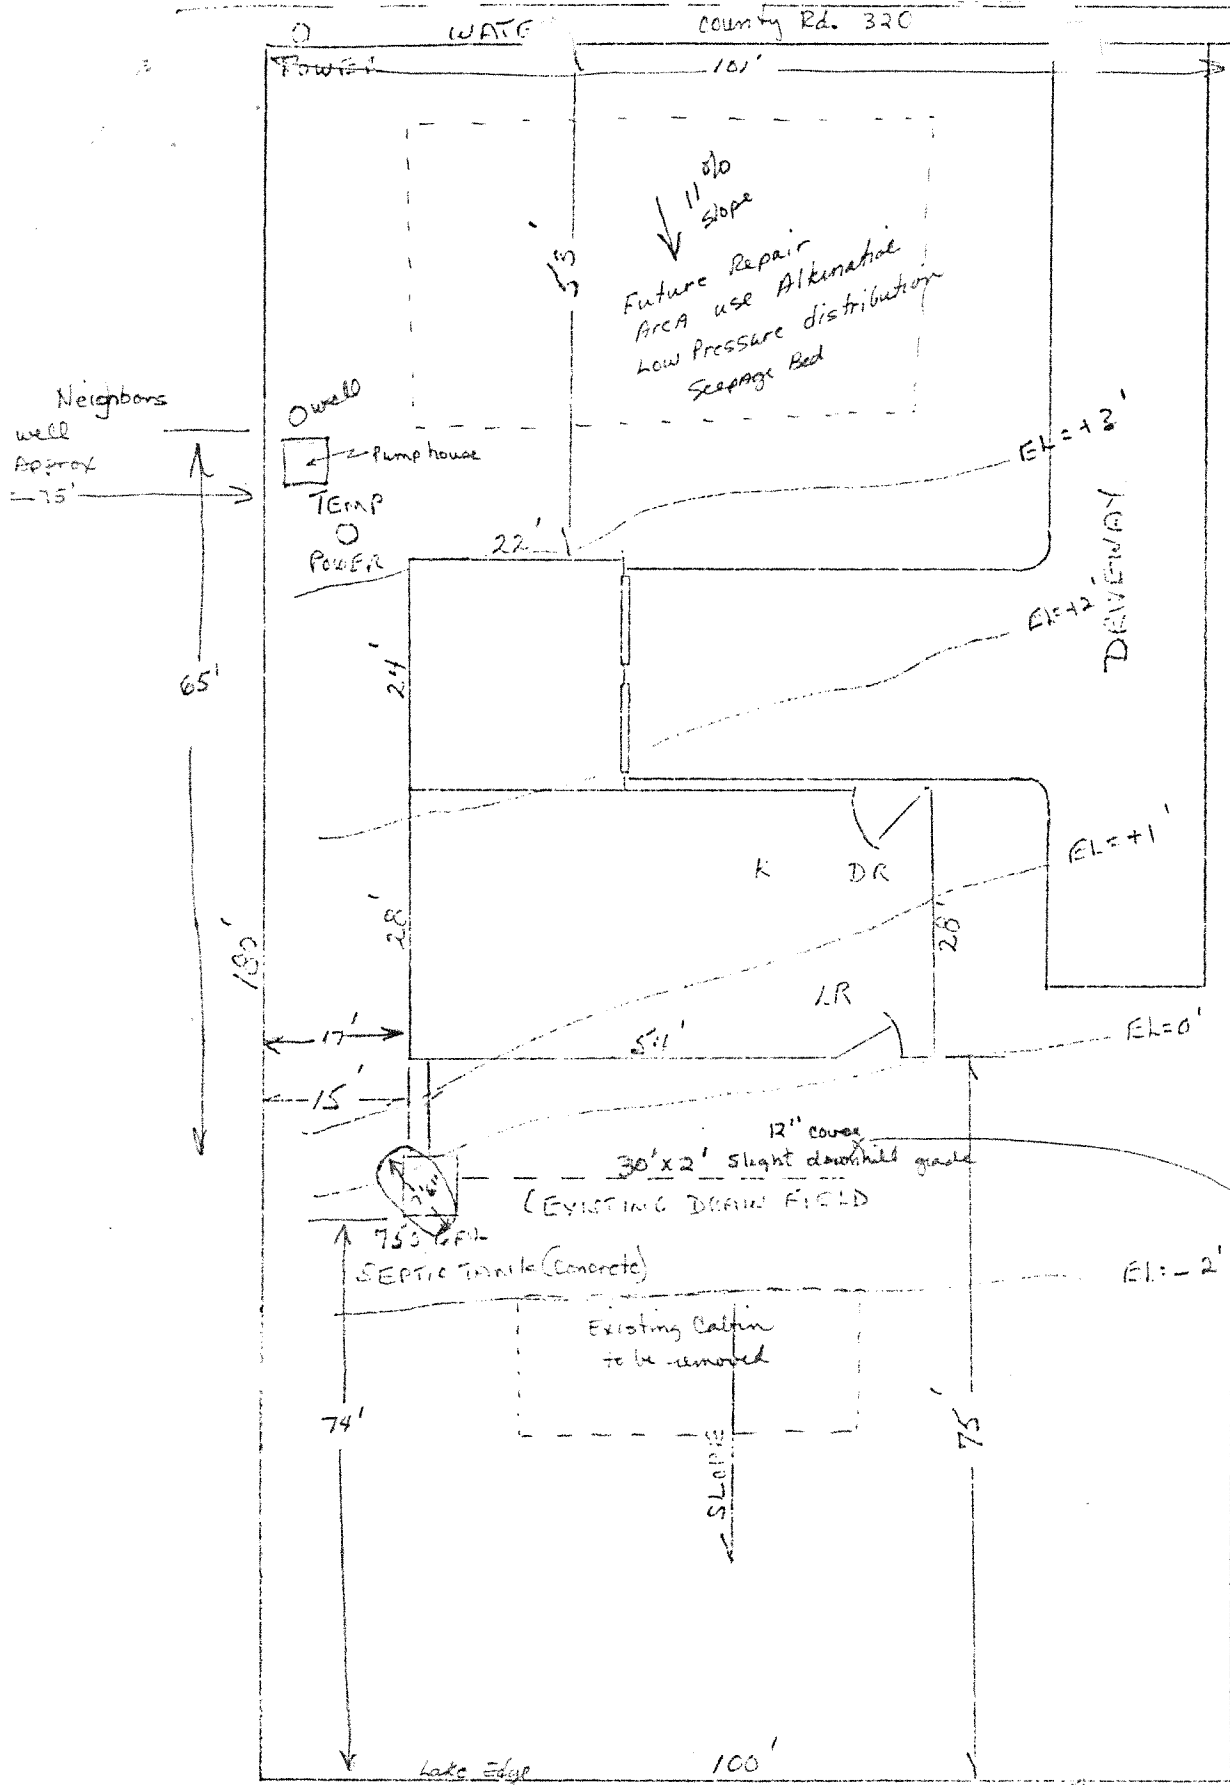 WATE
County Rd. 320
POWER
101'
11 %
slope
Future Repair
Area use Alternative
Low Pressure distribution
Seepage Bed
53'
Neighbors
well
Approx
75'
well
Pump house
TEMP
POWER
22'
EL=+3'
65'
24'
EL=+2'
DRIVEWAY
K
DR
EL=+1'
28'
28'
180'
LR
17'
54'
EL=0'
15'
12" cover
30'x2' Slight downhill grade
(EXISTING DRAIN FIELD
750 GAL
SEPTIC TANK (Concrete)
EL=-2'
Existing Cabin
to be removed
74'
75'
SLOPE
Lake Edge
100'